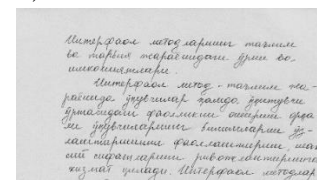 Интерфаол методларнинг таълим
ва тарбия жараёнидаги ўрни ва
имкониятлари.
Интерфаол метод - таълим жа-
раёнида ўқувчилар ҳамда ўқитувчи
ўртасидаги фаолликни ошириб орқа-
ли ўқувчиларнинг билимларни ўз-
лаштиришини фаоллаштириш, шах-
сий сифатларини ривожлантиришга
хизмат қилади. Интерфаол методлар